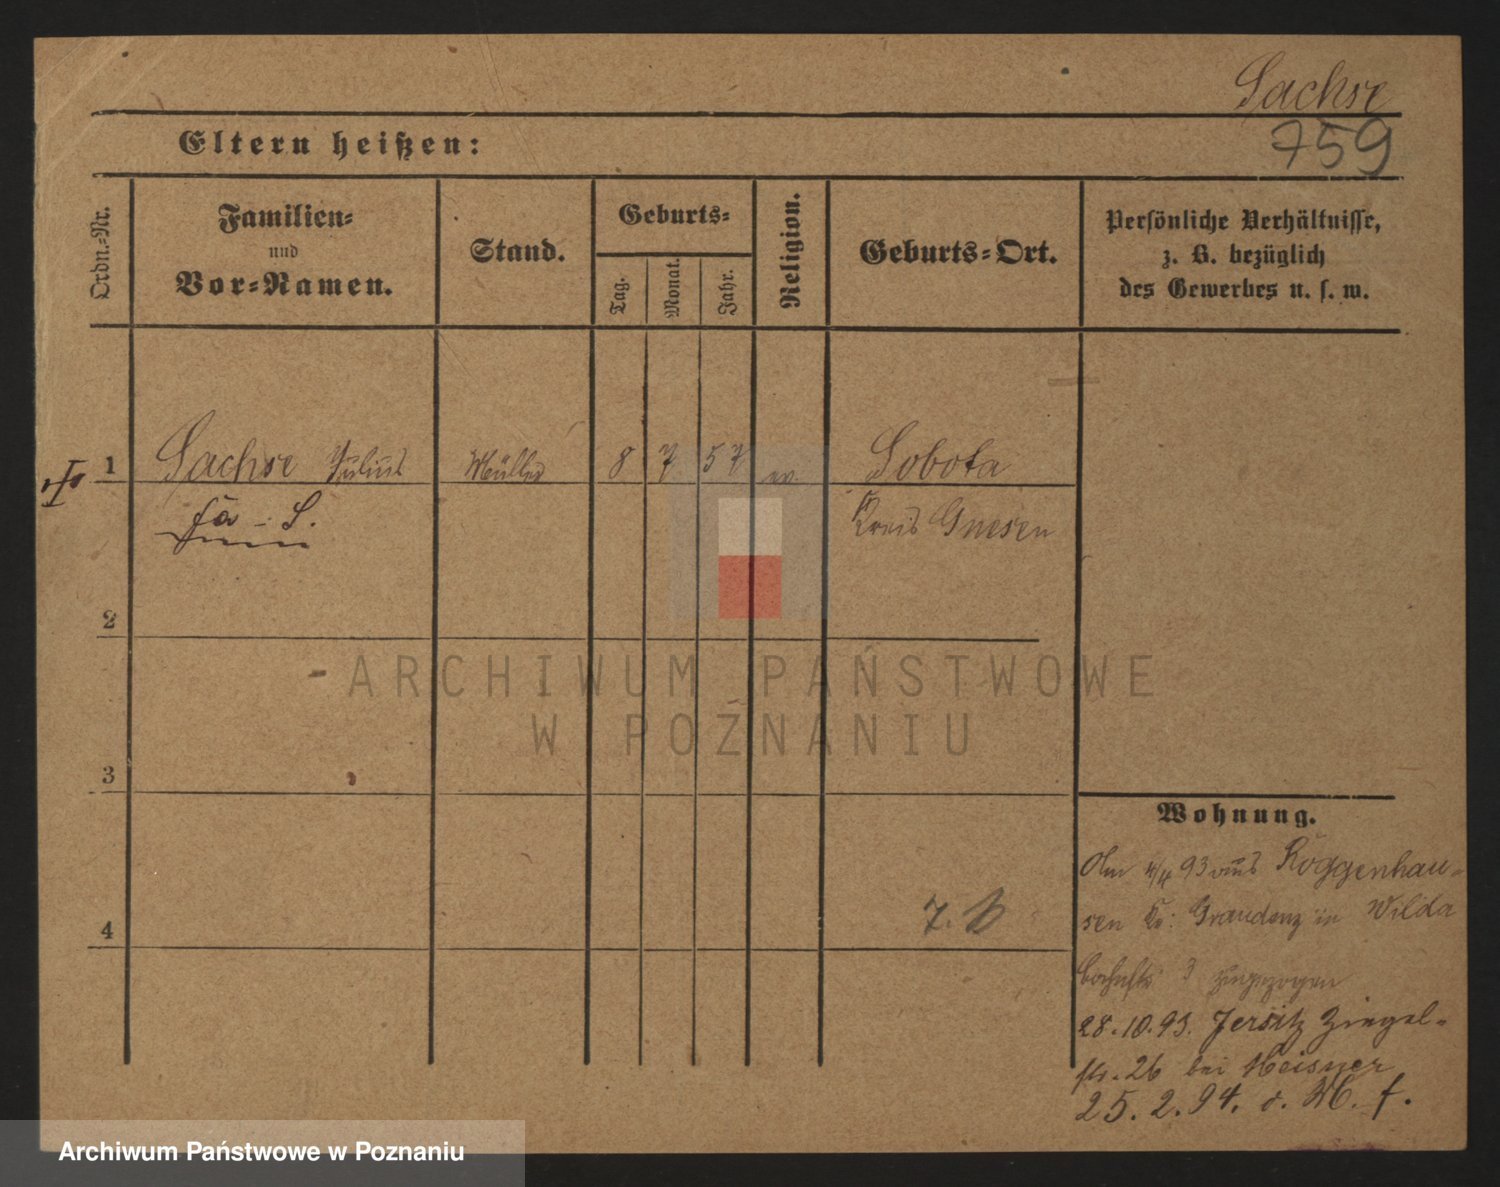 Sachse
759
Eltern heißen:
Ordn.=Nr.
Familien=
und
Vor=Namen.
Stand.
Geburts=
Tag.
Monat.
Jahr.
Religion.
Geburts=Ort.
Persönliche Verhältnisse,
z. B. bezüglich
des Gewerbes u. s. w.
1 Sachse Julius Müller 8 7 57 ev. Sobota
Kreis Gnesen
2
3
4
7. B
Wohnung.
Am 4/4 93 aus Roggenhau-
sen Kr: Graudenz in Wilda
3 zugezogen
28.10.93. Jersitz Ziegel-
str. 26 bei Meisner
25.2.94. o. M. f.
ARCHIWUM PAŃSTWOWE
W POZNANIU
Archiwum Państwowe w Poznaniu